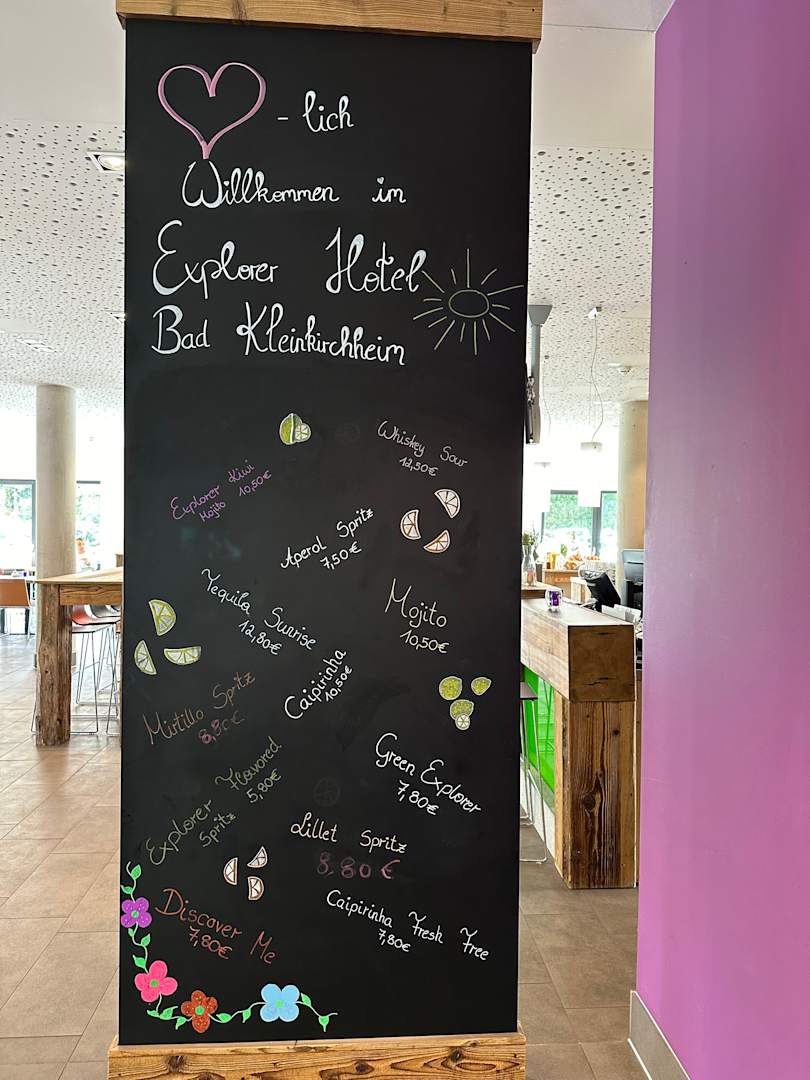 - lich
Willkommen im
Explorer Hotel
Bad Kleinkirchheim
Whiskey Sour
12,50€
Explorer Kiwi
Mojito 10,50€
Aperol Spritz
7,50€
Tequila Sunrise
12,80€
Mojito
10,50€
Caipirinha
10,50€
Mirtillo Spritz
8,80€
Green Explorer
7,80€
Explorer Flavored
Spritz 5,80€
Lillet Spritz
8,80€
Caipirinha Fresh Free
7,80€
Discover Me
7,80€